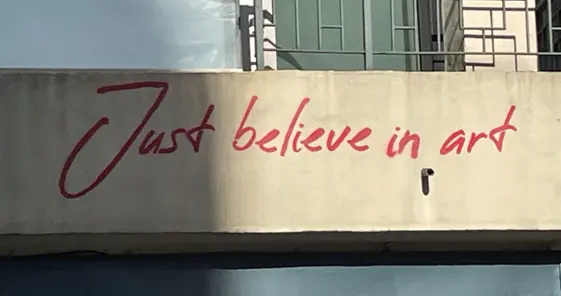 Just believe in art